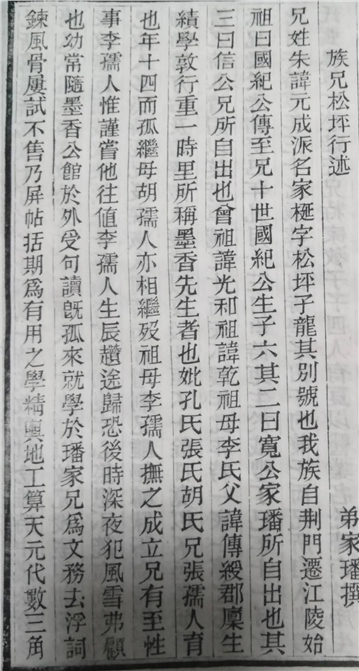 族兄松坪行述
弟家璠撰
兄姓朱諱元成派名家梴字松坪子龍其別號也我族自荆門遷江陵始
祖曰國紀公傳至兄十世國紀公生子六其二曰寬公家璠所自出也其
三曰信公兄所自出也曾祖諱光和祖諱乾祖母李氏父諱傳綬郡廩生
績學敦行重一時里所稱墨香先生者也妣孔氏張氏胡氏兄張孺人育
也年十四而孤繼母胡孺人亦相繼歿祖母李孺人撫之成立兄有至性
事李孺人惟謹嘗他往値李孺人生辰趲途歸恐後時深夜犯風雪弗顧
也幼常隨墨香公館於外受句讀旣孤來就學於璠家兄爲文務去浮詞
鍊風骨屢試不售乃屏帖括期爲有用之學精輿地工算天元代數三角